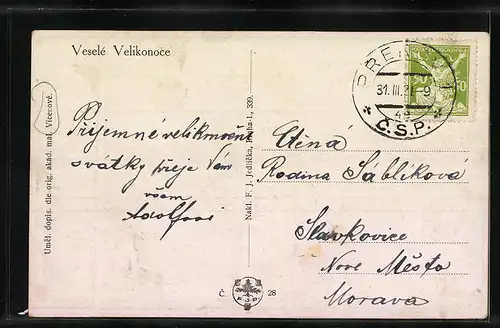 Veselé Velikonoce
PŘEROV 1
31. III. 2 -9
4a
* Č.S.P. *
50
Příjemné velikonoční
svátky přeje Vám
všem
Ctěná
Rodina Sablíková
Slavkovice
Nové Město
Morava
Uměl. dopis. dle orig. akad. mal. Vícenové.
Nakl. F. J. Jedlička, Praha-I., 339.
Č. 28